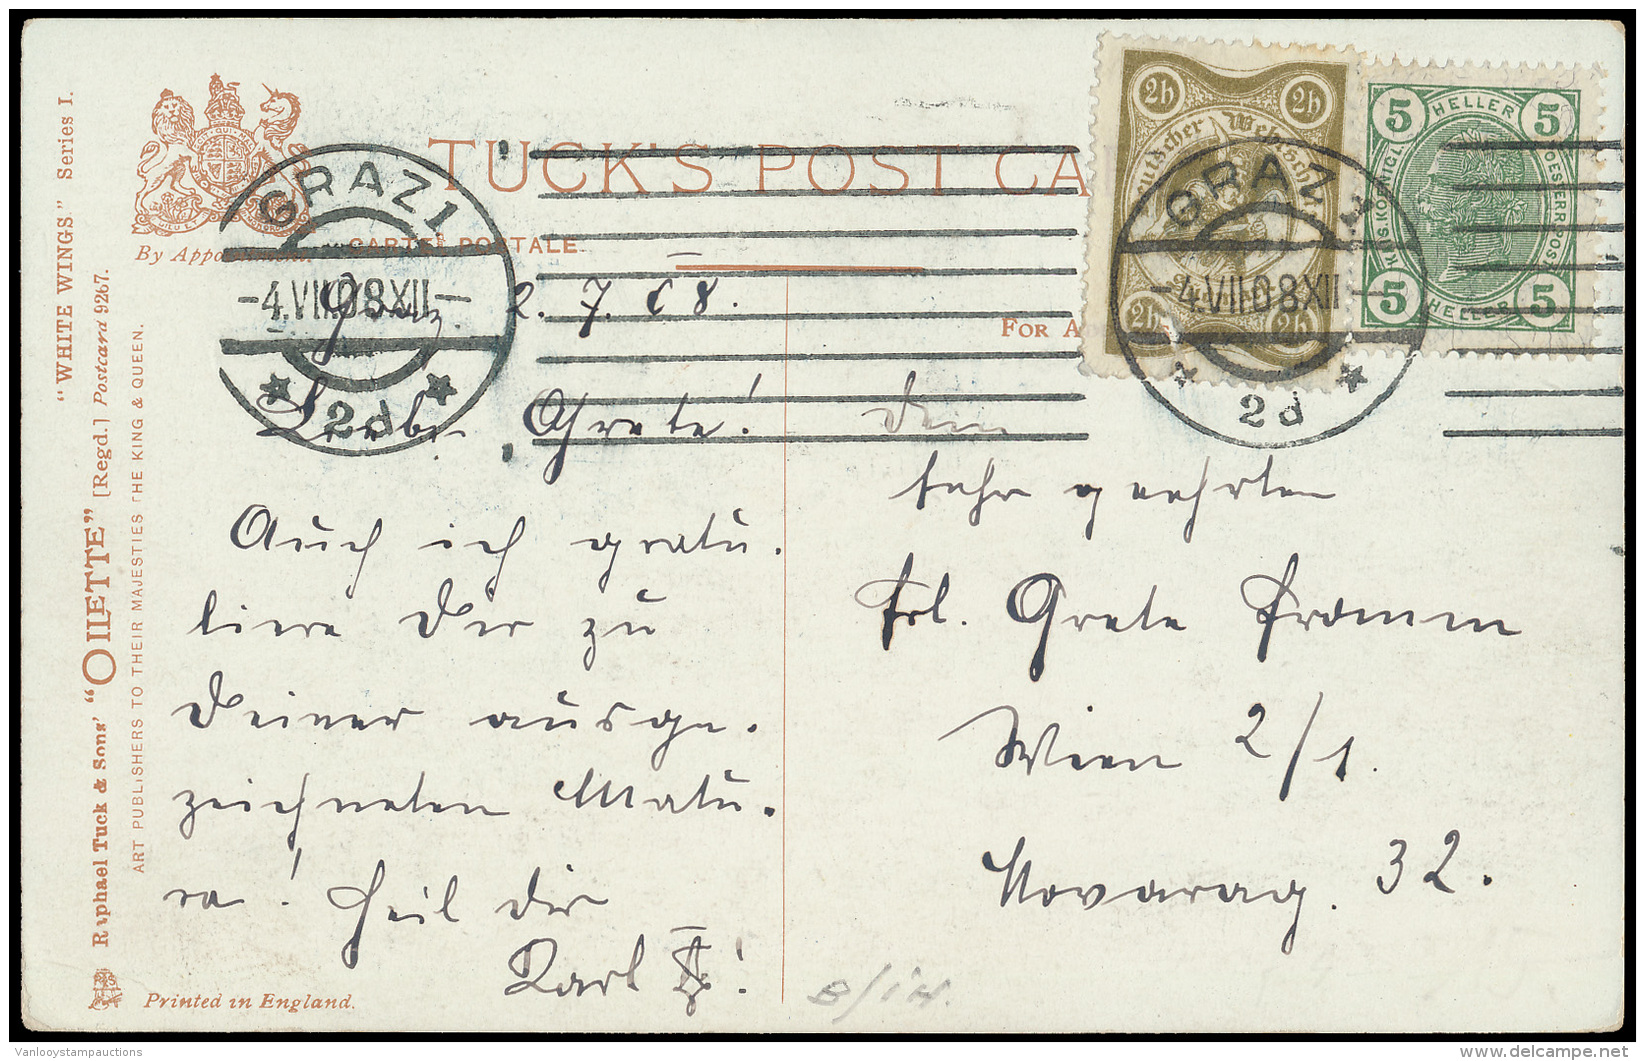 "WHITE WINGS." Series I.
Raphael Tuck & Sons' "OILETTE" [Regd.] Postcard 9267.
ART PUBLISHERS TO THEIR MAJESTIES THE KING & QUEEN.
TUCK'S POST CA
By Appointment.
CARTE POSTALE
FOR A
GRAZ 1
-4.VII 08 XII-
* 2d *
2h 2h
Deutscher Wehrschatz
2h 2h
5 HELLER 5
KAIS. KÖNIGL. OESTERR. POST
5 HELLER 5
GRAZ 1
-4.VII 08 XII-
* 2d *
Graz 2. 7. 08.
Liebe Grete!
Auch ich gratu.
liere Dir zu
Deiner ausge.
zeichneten Matu.
ra! Heil dir
Karl
Dem
sehr geehrten
Frl. Grete Fromm
Wien 2/1.
Novarag. 32.
Printed in England.
Vanlooystampauctions
delcampe.net